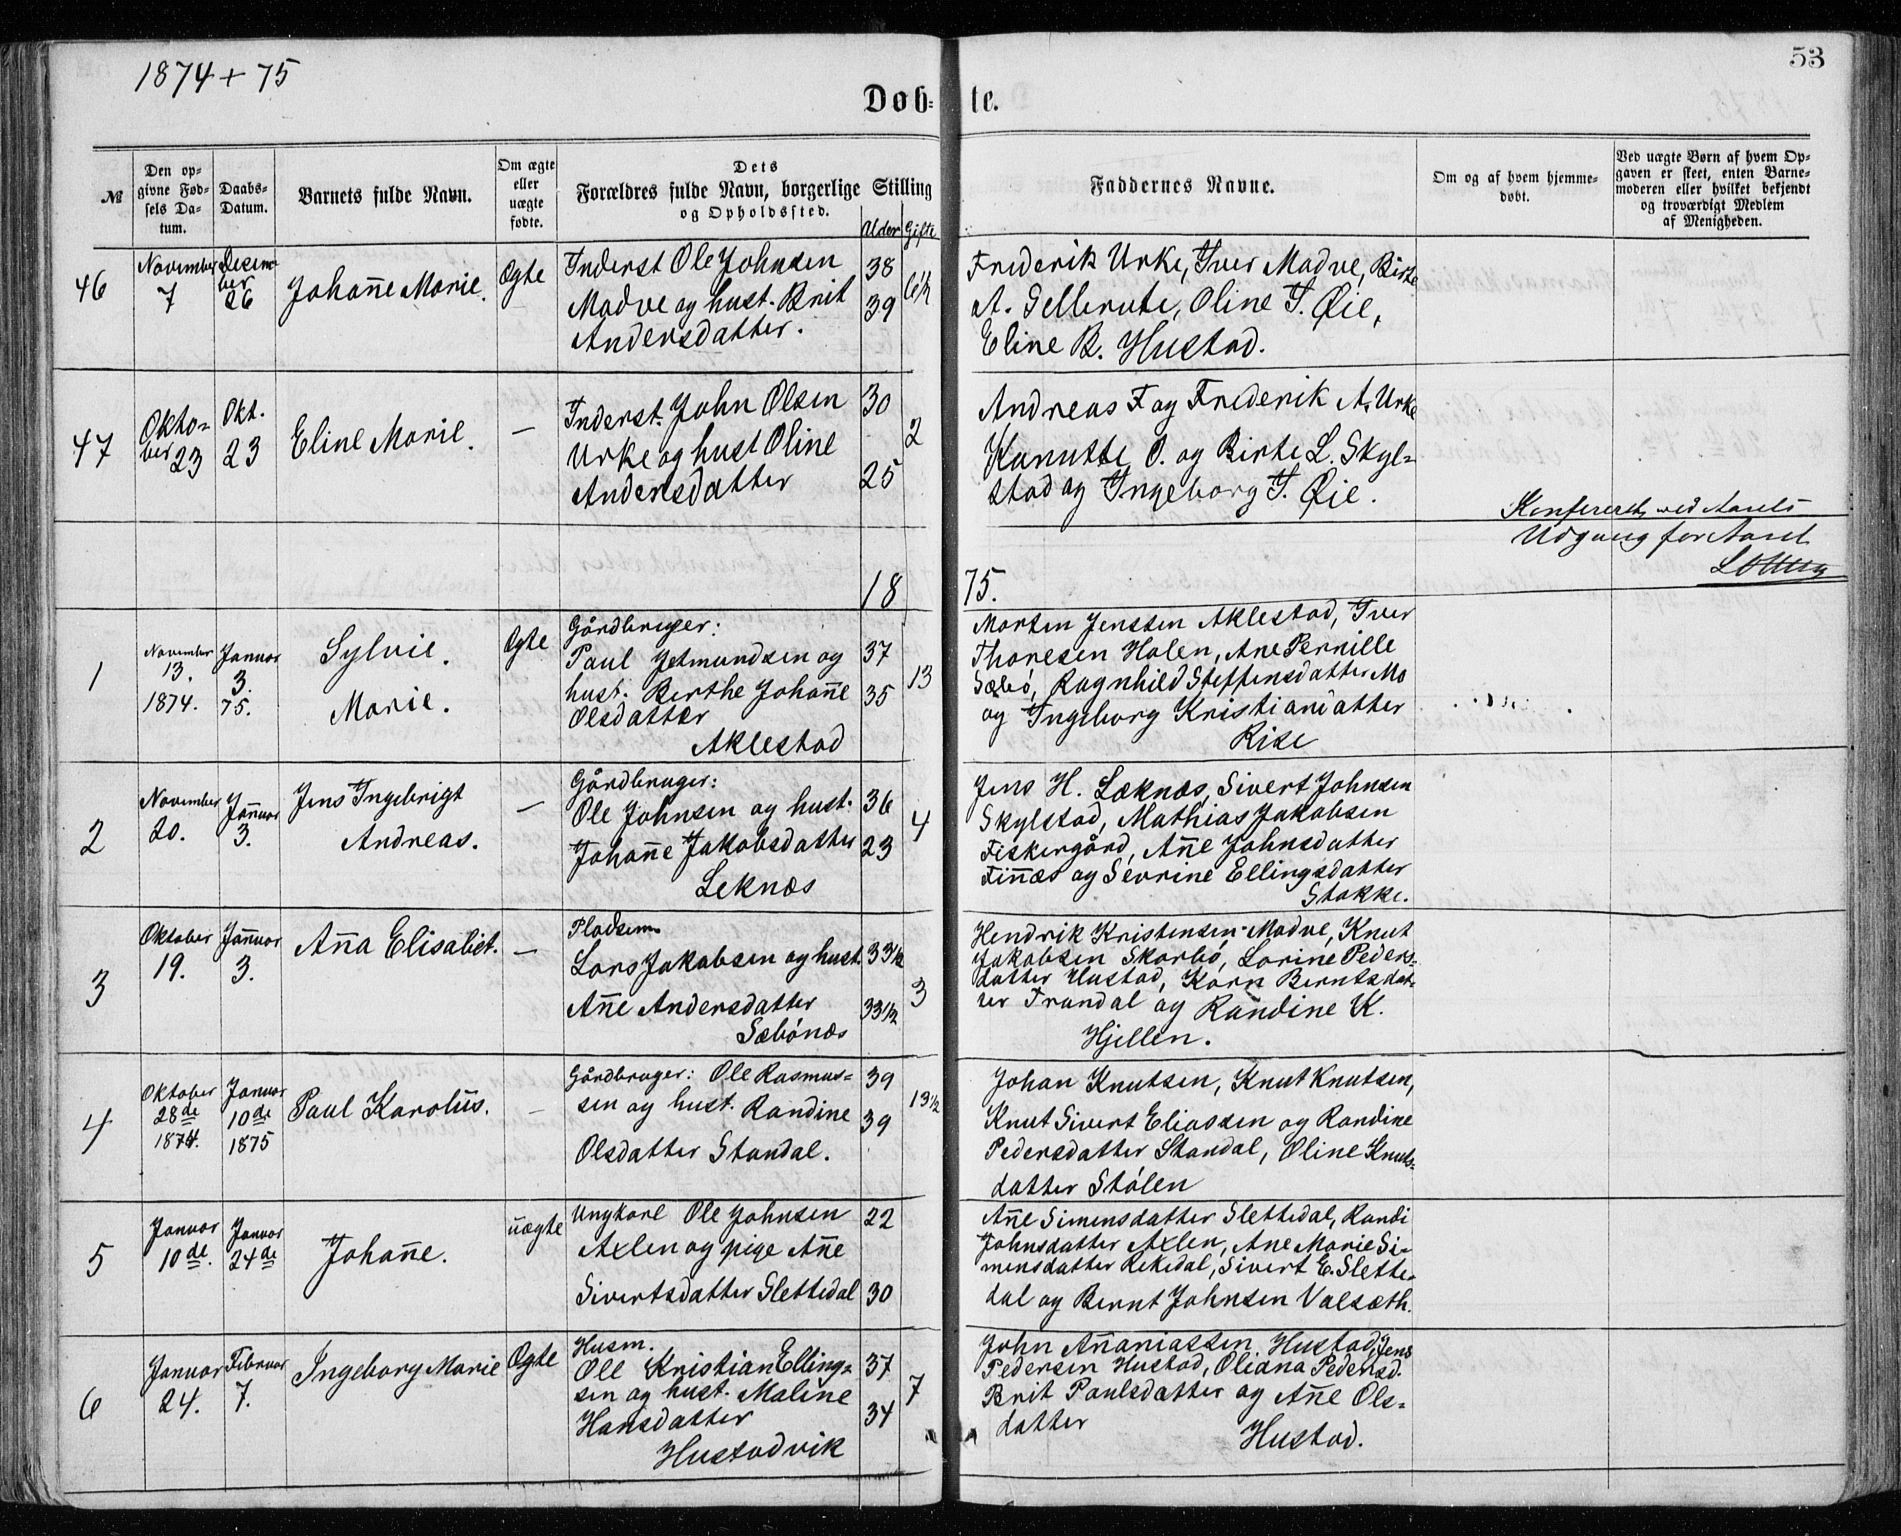 1874 + 75
53
Døb-
te.
№
Den op-
givne Fød-
sels Da-
tum.
Daabs-
Datum.
Barnets fulde Navn.
Om ægte
eller
uægte
fødte.
Dets
Forældres fulde Navn, borgerlige Stilling
og Opholdssted.
Alder
Gifte
Faddernes Navne.
Om og af hvem hjemme-
døbt.
Ved uægte Børn af hvem Op-
gaven er skeet, enten Barne-
moderen eller hvilket bekjendt
og troværdigt Medlem
af Menigheden.
46
November
7
Desem-
ber
26
Johan̄e Marie.
Ægte
Inderst Ole Johnsen
Madve og hust. Brit
Andersdatter.
38
39
6½
Frederik Urke, Iver Madve, Birte
A. Gellerute, Oline T. Øie,
Eline B. Hustad.
47
Okto-
ber 23
Okt.
23
Eline Marie.
—
Inderst. John Olsen
Urke og hust Oline
Andersdatter
30
25
2
Andreas F og Frederik A. Urke
Kanutte O. og Birte L. Skyl-
stad og Ingeborg T. Øie.
Konfereret ved Aarets
Udgang for Aaret
18
75.
1
November
13.
1874.
Januar
3.
75.
Sylvie.
Marie.
Ægte
Gårdbruger:
Paul Jetmundsen og
hust. Berthe Johan̄e
Olsdatter
Aklestad
37
35
13
Morten Jenssen Aklestad, Iver
Thoresen Holen, Ane Pernille
Sæbø, Ragnhild Steffensdatter Mo
og Ingeborg Kristianiatter
Rise
2
November
20.
Jan̄uar
3.
Jens Ingebrigt
Andreas.
—
Gårdbruger:
Ole Johnsen og hust.
Johan̄e Jakobsdatter
Leknæs
36
23
4
Jens H. Læknæs, Sivert Johnsen
Skylstad, Mathias Jakobsen
Fiskergård, An̄e Johnsdatter
Fin̄æs og Sevrine Ellingsdatter
Stakke.
3
Oktober
19.
Jan̄uar
3.
An̄a Elisabet.
—
Pladsem.
Lars Jakobsen og hust.
An̄e Andersdatter
Sæbönæs
33½
33½
3
Hendrik Kristensen Madve, Knut
Jakobsen Skorbø, Lorine Peders-
datter Hustad, Karn Berntsdat-
ter Trandal og Randine K.
Hjellen.
4
Oktober
28de
1874.
Januar
10de
1875
Paul Karolus.
—
Gårdbruger: Ole Rasmus-
sen og hust. Randine
Olsdatter Standal.
39
39
13½
Johan Knutsen, Knut Knutsen,
Knut Sivert Eliassen og Randine
Pedersdatter Standal, Oline Knuts-
datter Stølen
5
Januar
10de.
Januar
24de
Johan̄e.
uægte
Ungkarl Ole Johnsen
Axlen og pige An̄e
Sivertsdatter Slettedal
22
30
An̄e Simensdatter Slettedal, Randi
Johnsdatter Axlen, Ane Marie Si-
mensdatter Rekedal, Sivert E. Slette-
dal og Bernt Johnsen Valsæth.
6
Januar
24.
Februar
7.
Ingeborg Marie
Ægte
Husm.
Ole Kristian Elling-
sen og hust. Maline
Hansdatter
Hustadvik
37
34
7
John An̄aniassen Hustad, Jens
Pedersen Hustad, Oliana Pedersd.
Brit Paulsdatter og An̄e Ols-
datter
Hustad.